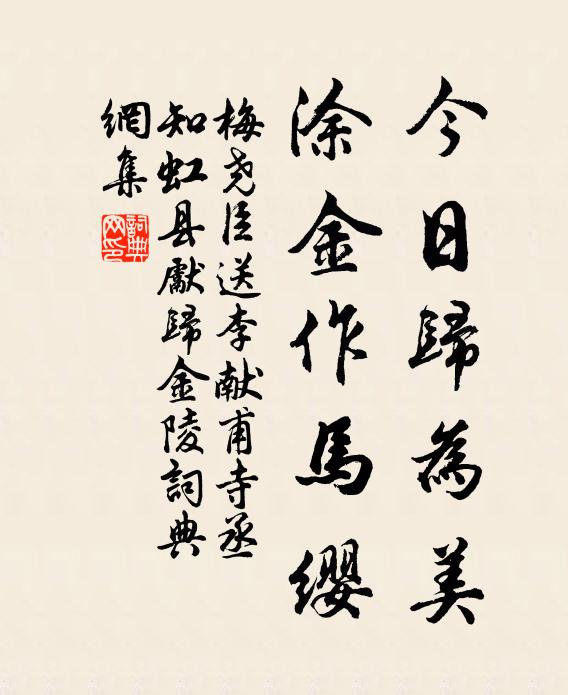 今日歸為美
涂金作馬缨
梅尧臣送李献甫寺丞
知虹县獻歸金陵詞典
網集
詞典
网印